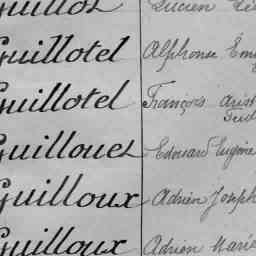 Guillot Lucien
Guillotel Alphonse
Guillotel François Arist
Guillouet Edouard Eugène
Guilloux Adrien Joseph
Guilloux Adrien Marie